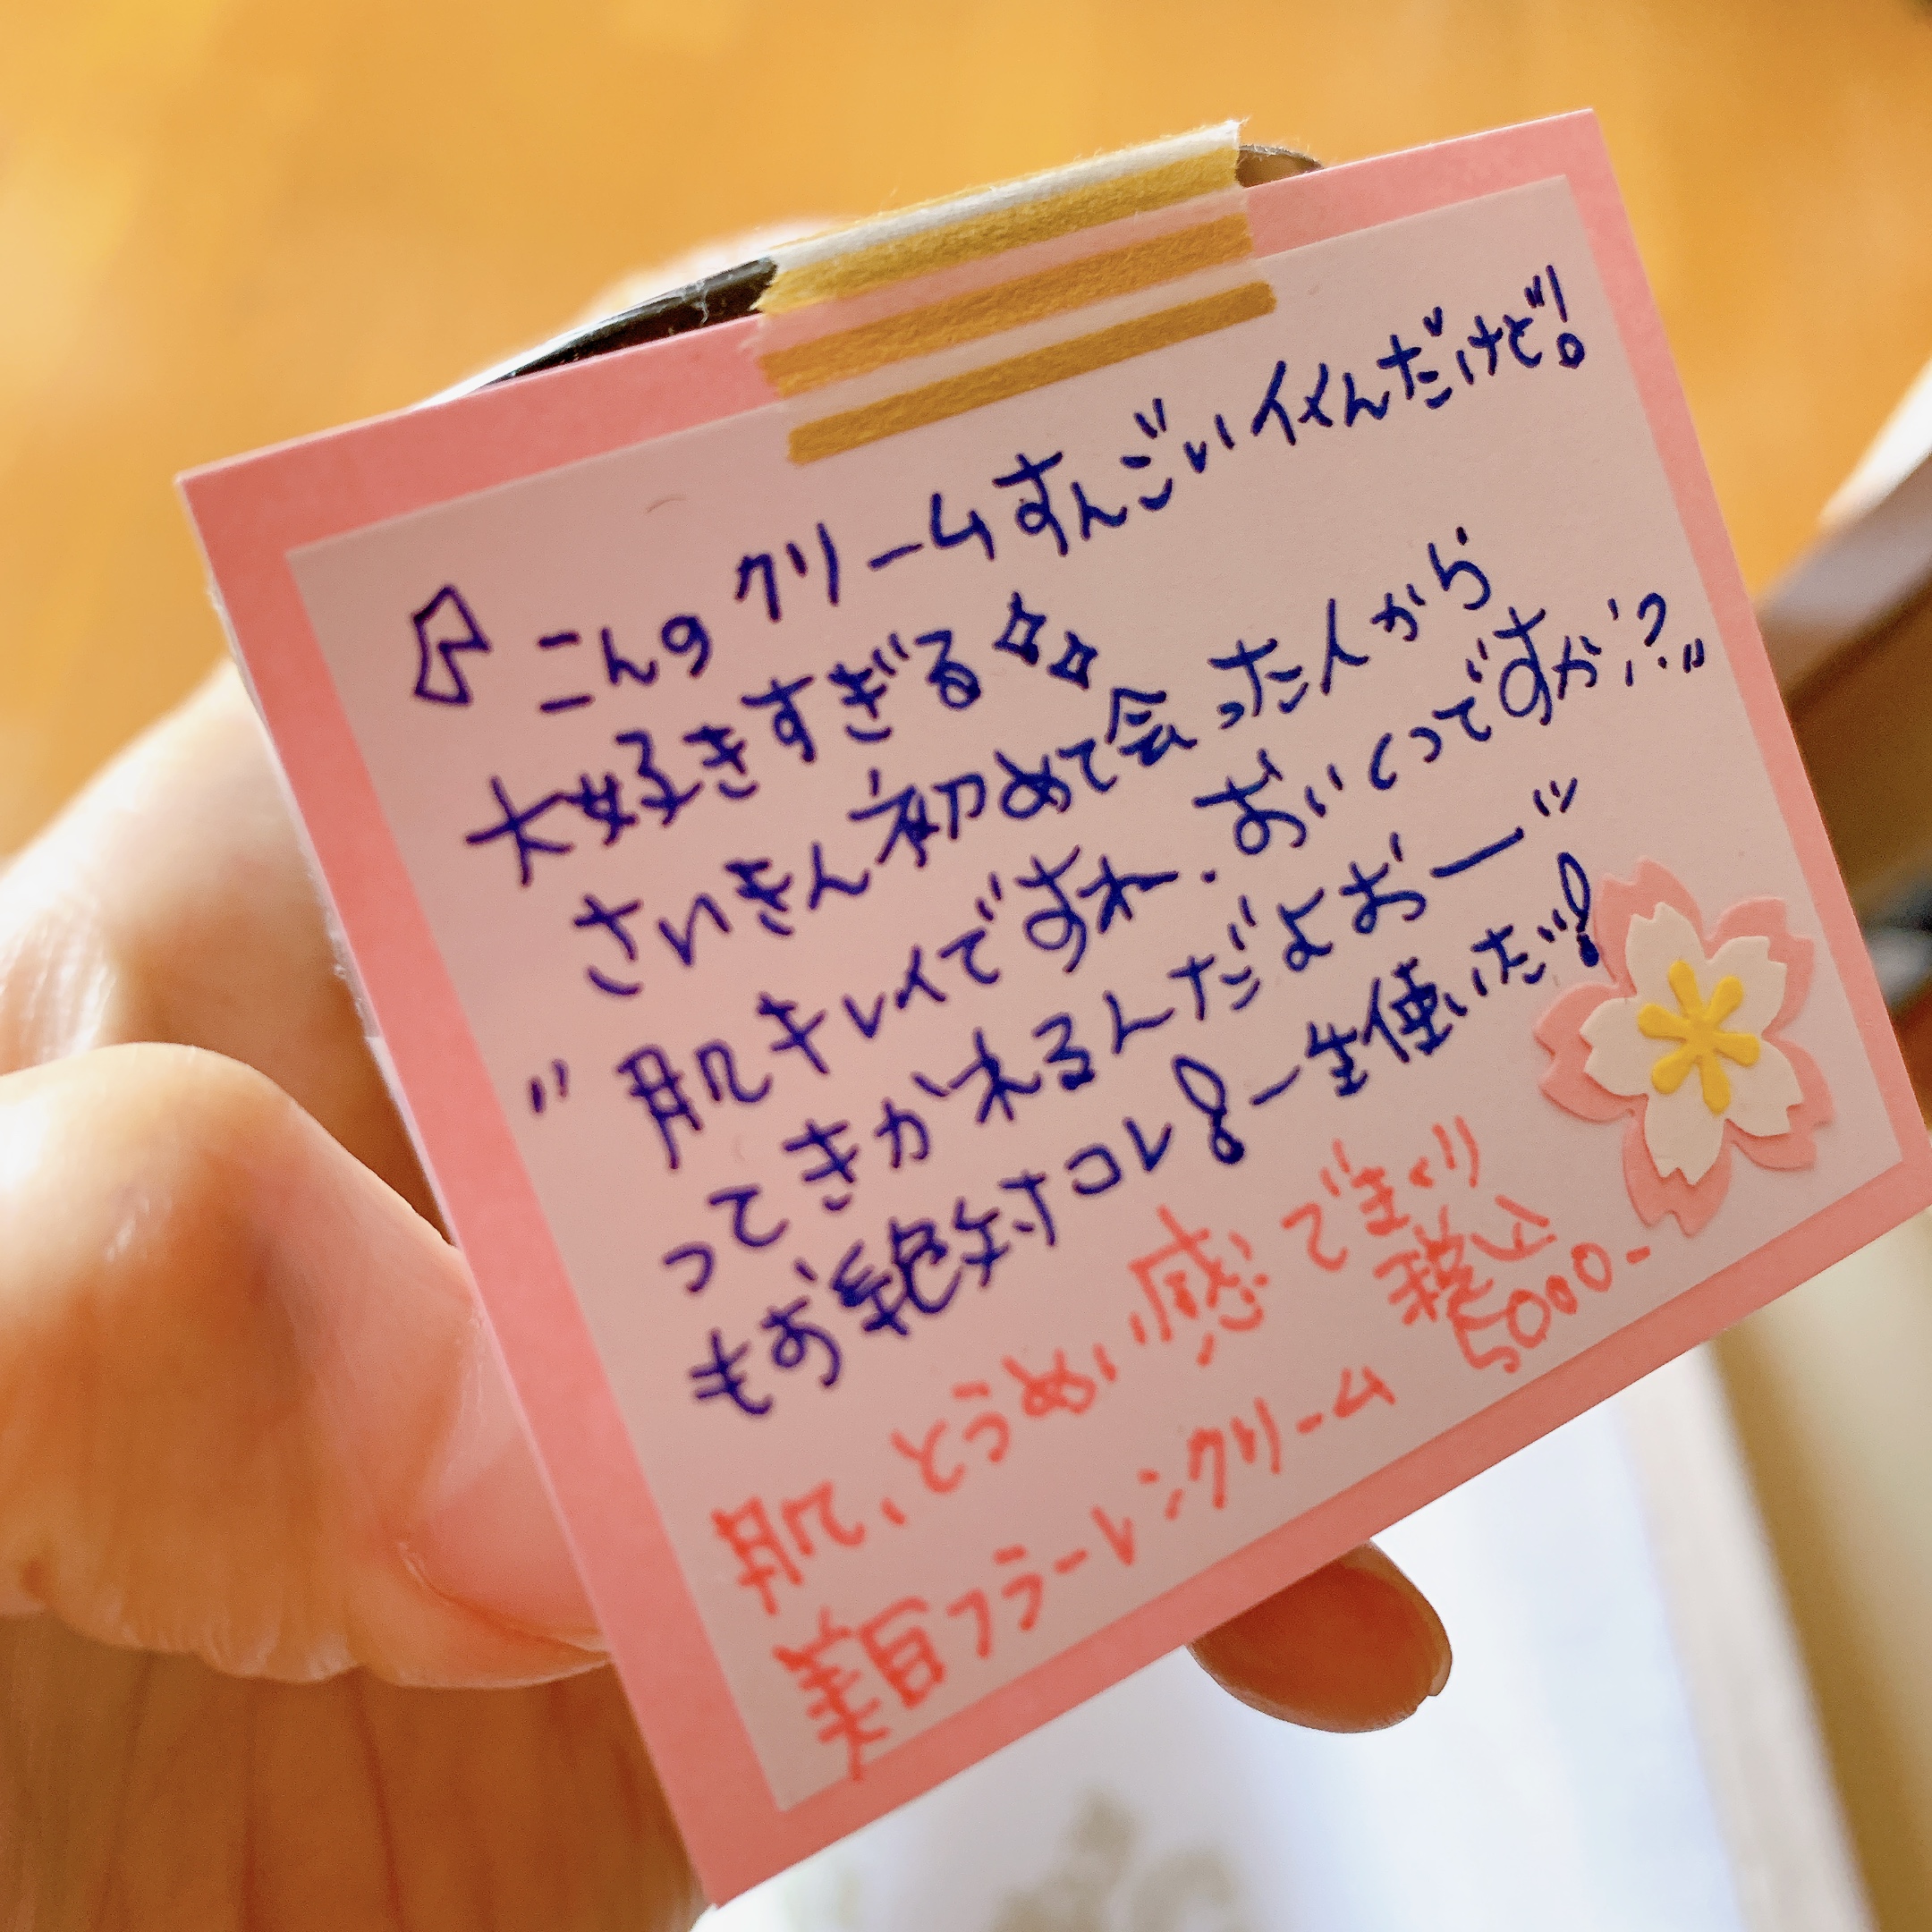 こんの クリームすんごいイイんだけど!
大好きすぎる
さいきん初めて会った人から
"肌キレイですね.おいくつですか?"
ってきかれるんだよおー"
もお絶対コレ!一生使いだ!
肌、とうめい感 でまくり
税込
美白フラーレンクリーム 5000-